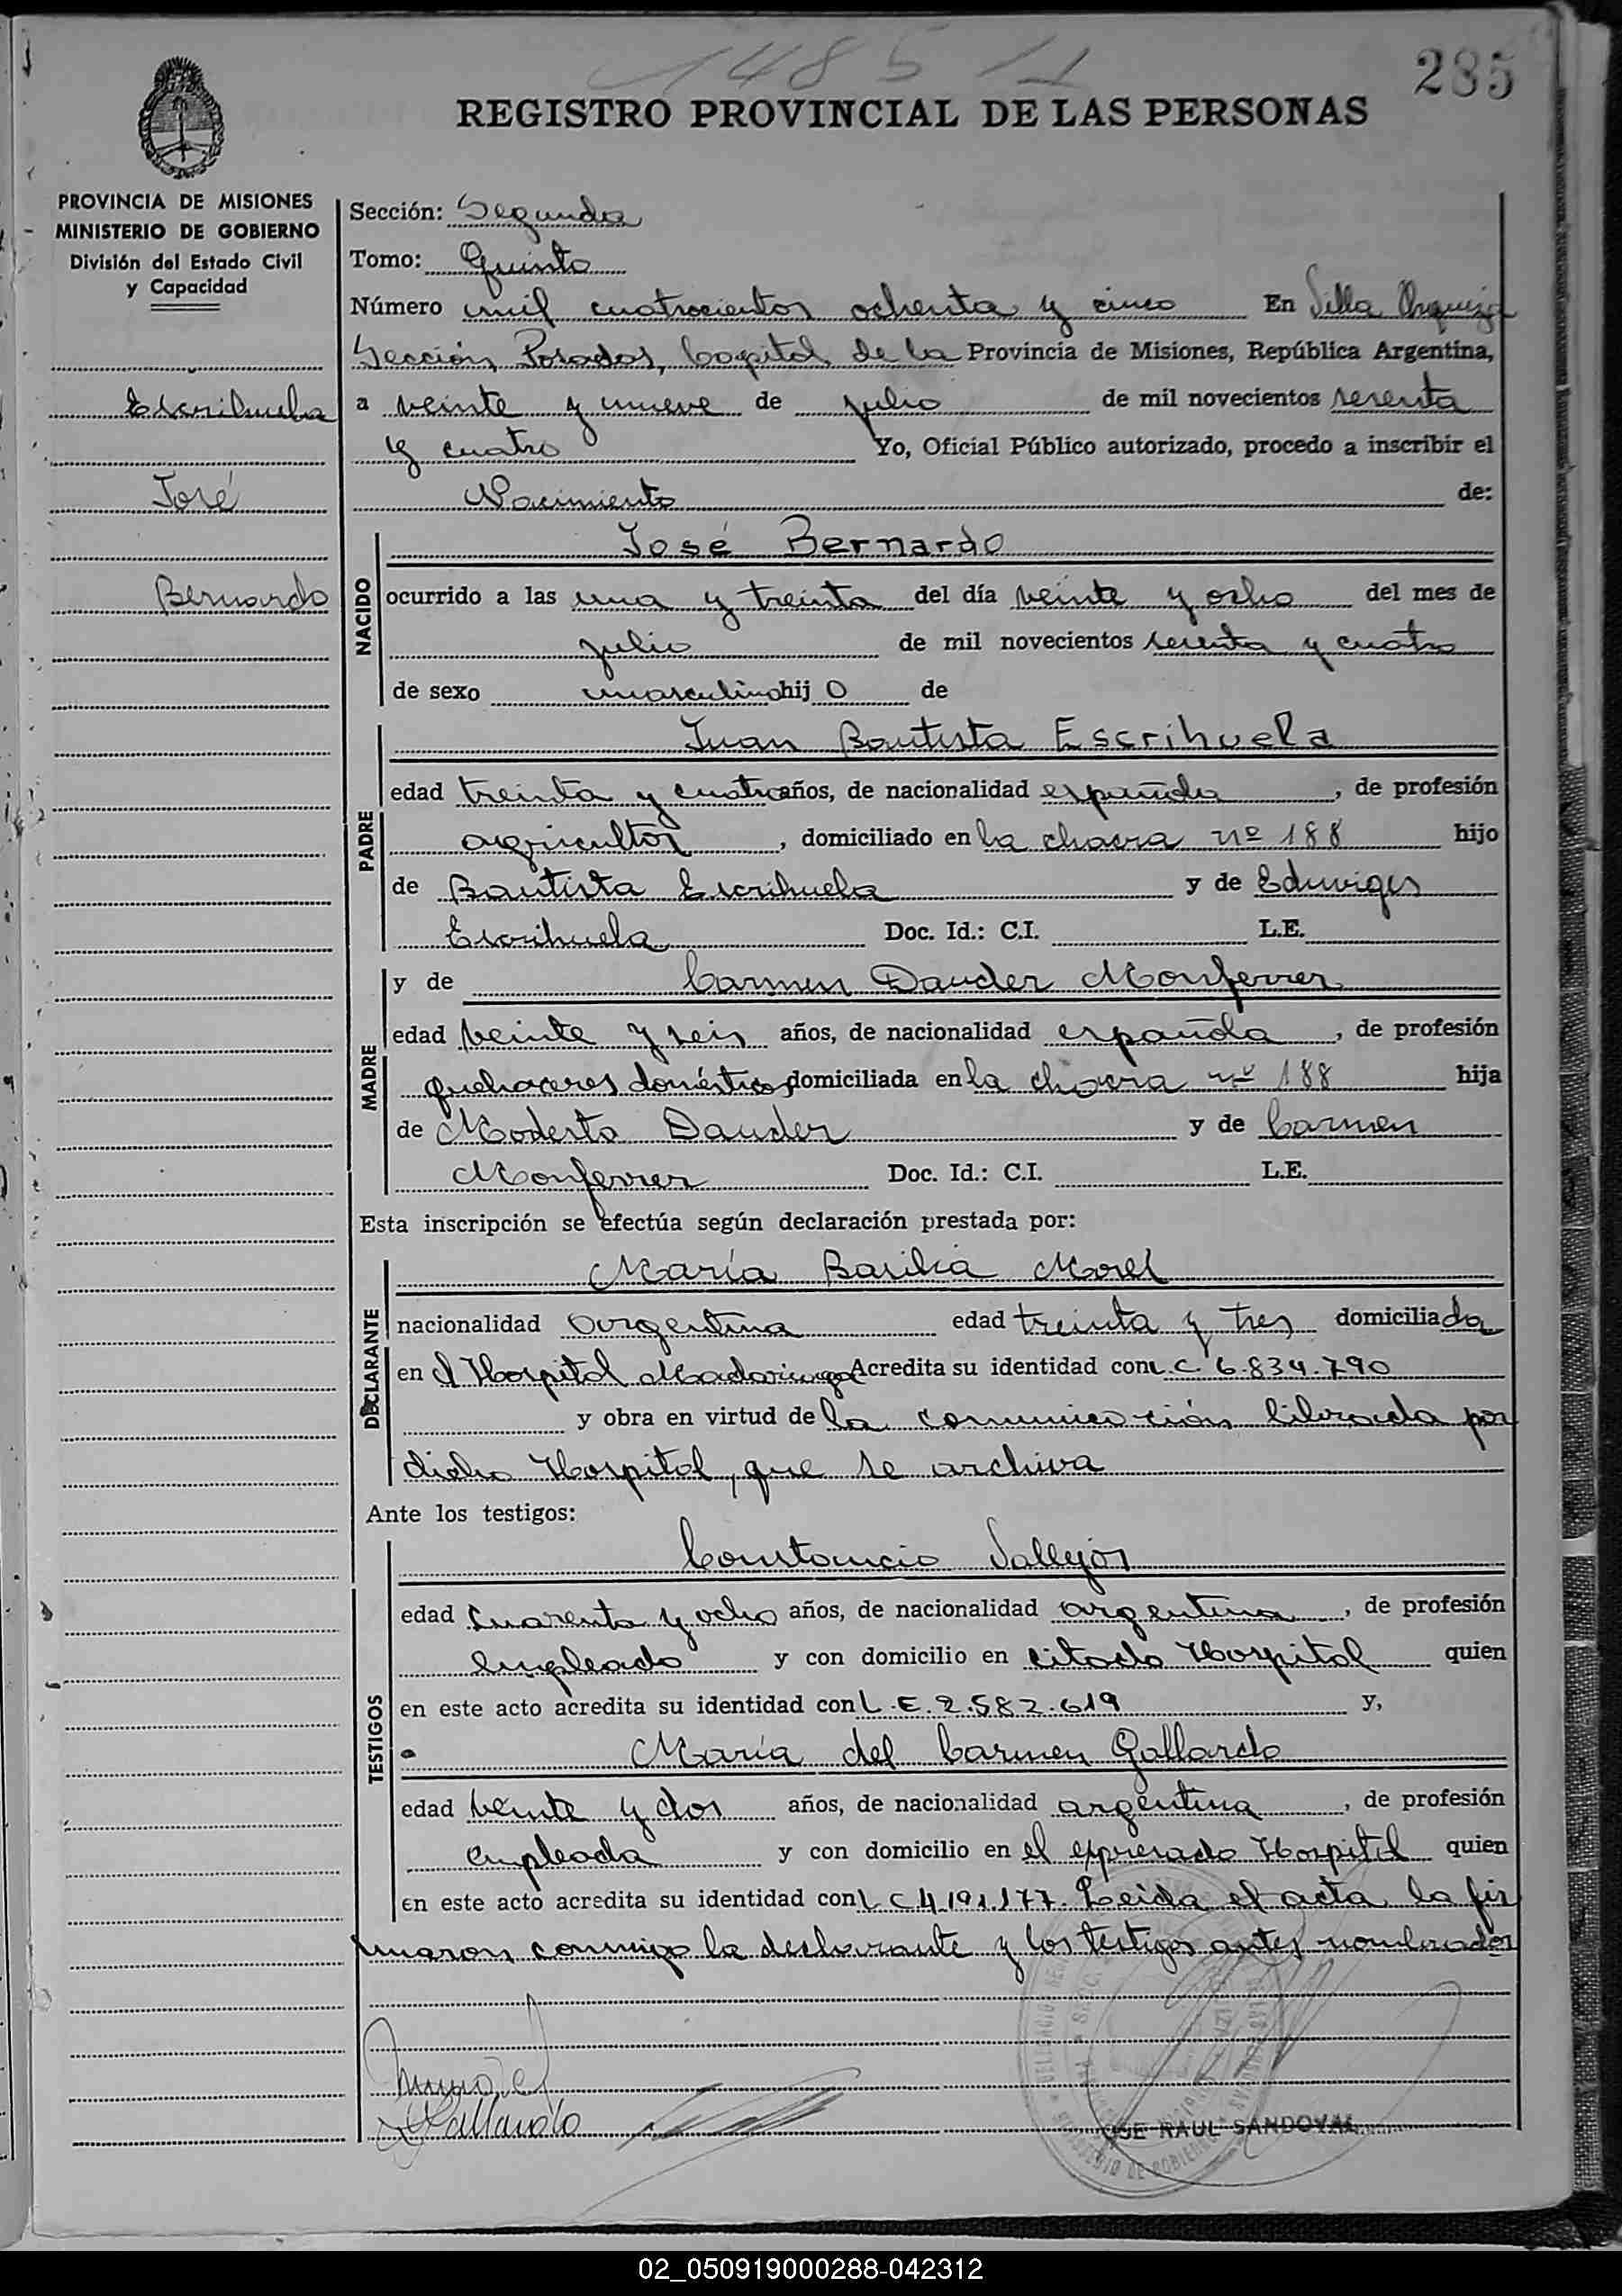 1485
285
REGISTRO PROVINCIAL DE LAS PERSONAS
PROVINCIA DE MISIONES
MINISTERIO DE GOBIERNO
División del Estado Civil
y Capacidad
Escrihuela
José
Bernardo
Sección: Segunda
Tomo: Quinto
Número mil cuatrocientos ochenta y cinco En Villa Urquiza
Sección Posadas, Capital de la Provincia de Misiones, República Argentina,
a veinte y nueve de julio de mil novecientos sesenta
y cuatro Yo, Oficial Público autorizado, procedo a inscribir el
Nacimiento de:
NACIDO
José Bernardo
ocurrido a las una y treinta del día veinte y ocho del mes de
julio de mil novecientos sesenta y cuatro
de sexo masculino hij o de
PADRE
Juan Bautista Escrihuela
edad treinta y cuatro años, de nacionalidad española, de profesión
agricultor, domiciliado en la chacra nº 188 hijo
de Bautista Escrihuela y de Eduviges
Escrihuela Doc. Id.: C.I. L.E.
MADRE
y de Carmen Dauder Monferrer
edad veinte y seis años, de nacionalidad española, de profesión
quehaceres domésticos domiciliada en la chacra nº 188 hija
de Modesto Dauder y de Carmen
Monferrer Doc. Id.: C.I. L.E.
Esta inscripción se efectúa según declaración prestada por:
DECLARANTE
María Basilia Morel
nacionalidad argentina edad treinta y tres domiciliada
en el Hospital Madariaga Acredita su identidad con L.C. 6.834.790
y obra en virtud de la comunicación librada por
dicho Hospital, que se archiva
Ante los testigos:
TESTIGOS
Constancio Vallejos
edad cuarenta y ocho años, de nacionalidad argentina, de profesión
empleado y con domicilio en citado Hospital quien
en este acto acredita su identidad con L.E. 2.582.619 y,
María del Carmen Gallardo
edad veinte y dos años, de nacionalidad argentina, de profesión
empleada y con domicilio en el expresado Hospital quien
en este acto acredita su identidad con L C 4.191.177. Leida el acta la fir
maron conmigo la declarante y los testigos antes nombrados
Gallardo
JOSE RAUL SANDOVAL
02_050919000288-042312